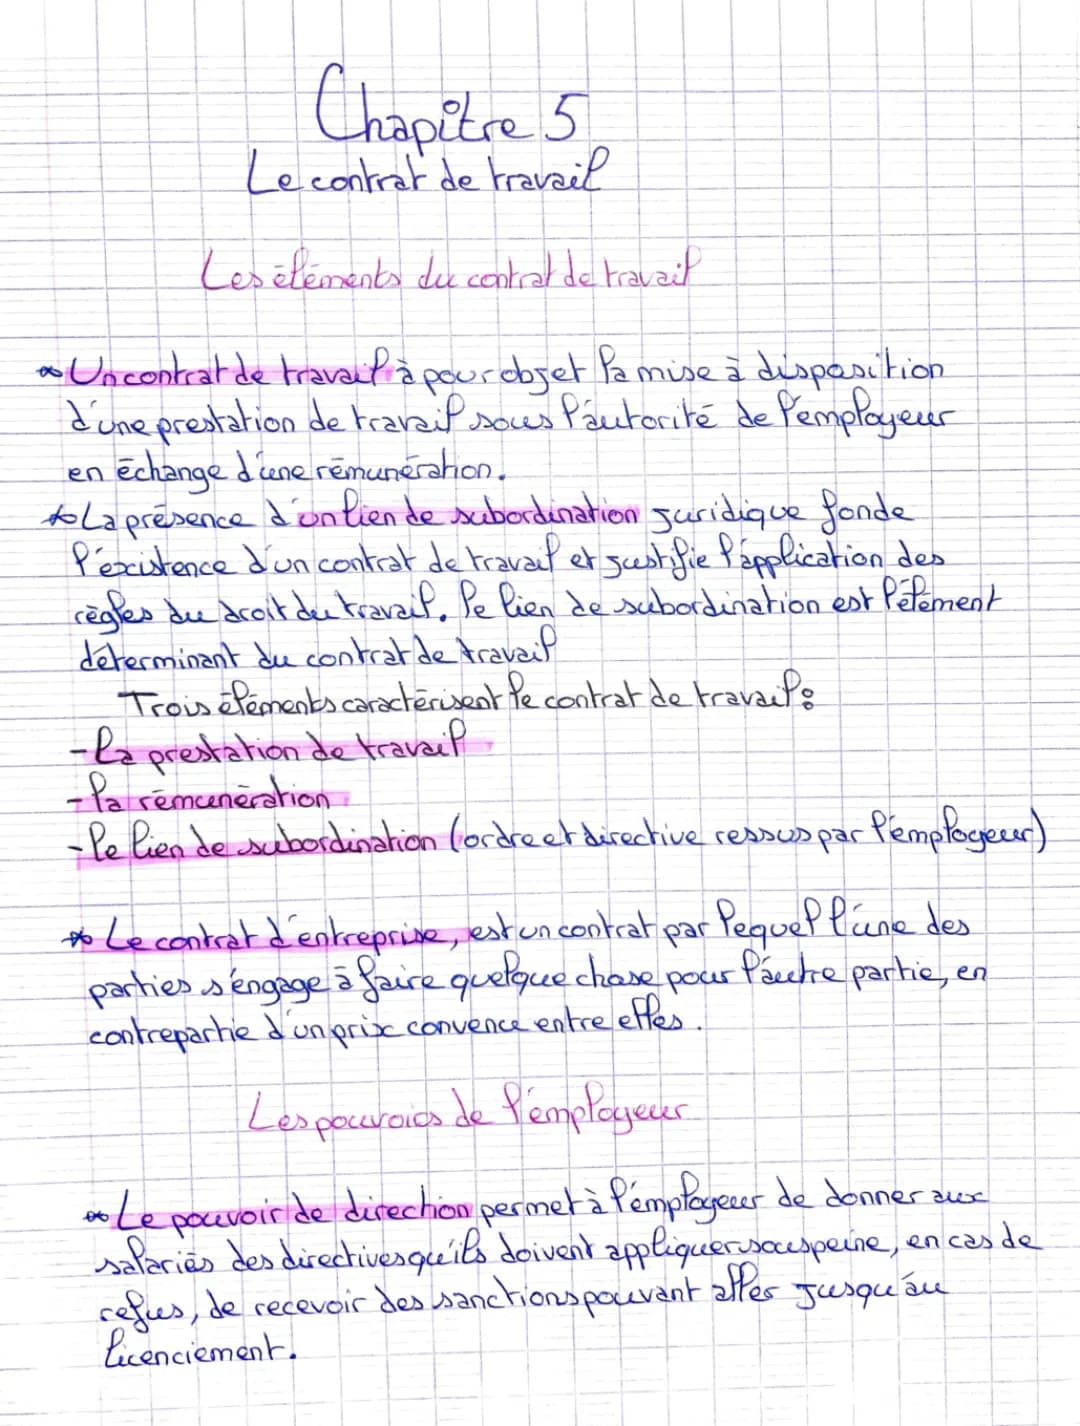 Chapitre 5
Le contrat de travail
Les éléments du contrat de travail
Un contrat de travail à pour objet la mise à disposition
d'une prestation de travail sous l'autorité de l'employeur
en échange d'une rémunération.
La présence d'un lien de subordination juridique fonde
l'existence d'un contrat de travail et justifie l'application des
règles du droit du travail. le lien de subordination est l'élément
déterminant du contrat de travail
Trois éléments caractérisent le contrat de travail :
- la prestation de travail
- la rémunération
- le lien de subordination (ordre et directive ressus par l'employeur)
Le contrat d'entreprise, est un contrat par lequel l'une des
parties s'engage à faire quelque chose pour l'autre partie, en
contrepartie d'un prix convence entre elles.
Les pouvoirs de l'employeur
Le pouvoir de direction permet à l'employeur de donner aux
salariés des directives qu'ils doivent appliquer sous peine, en cas de
refus, de recevoir des sanctions pouvant aller jusqu'au
licenciement.